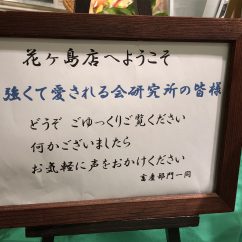 花ヶ島店へようこそ
強くて愛される会研究所の皆様
どうぞ ごゆっくりご覧ください
何かございましたら
お気軽に声をおかけください
畜産部門一同